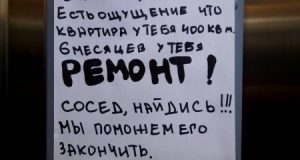 Есть ощущение что
квартира у тебя 400 кв м.
6 месяцев у тебя
РЕМОНТ!
СОСЕД, НАЙДИСЬ!!!
МЫ ПОМОЖЕМ ЕГО
ЗАКОНЧИТЬ.